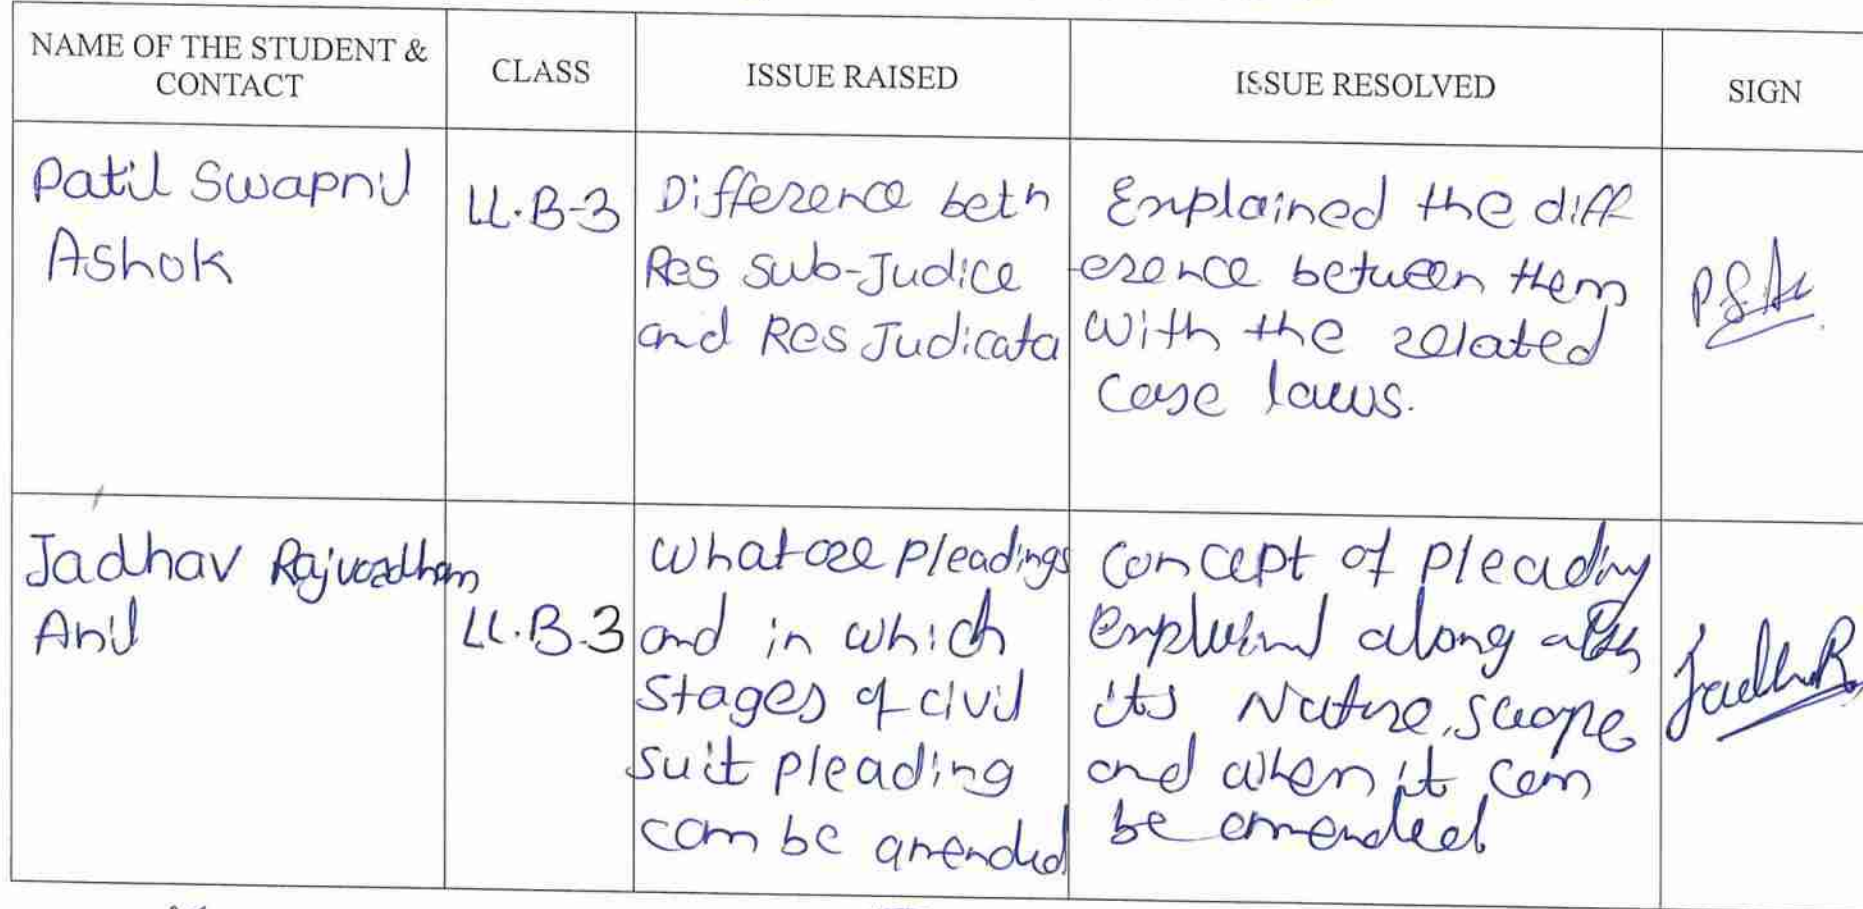 NAME OF THE STUDENT &
CONTACT
CLASS
ISSUE RAISED
ISSUE RESOLVED
SIGN
Patil Swapnil
Ashok
LL.B-3
Difference betn
Res Sub-Judice
and Res Judicata
Explained the diff
erence between them
with the related
case laws.
Jadhav Rajvardhan
Anil
LL.B.3
What are pleadings
and in which
stages of civil
suit pleading
can be amended
Concept of pleading
Explained along with
its Nature, scope
and when it can
be amended